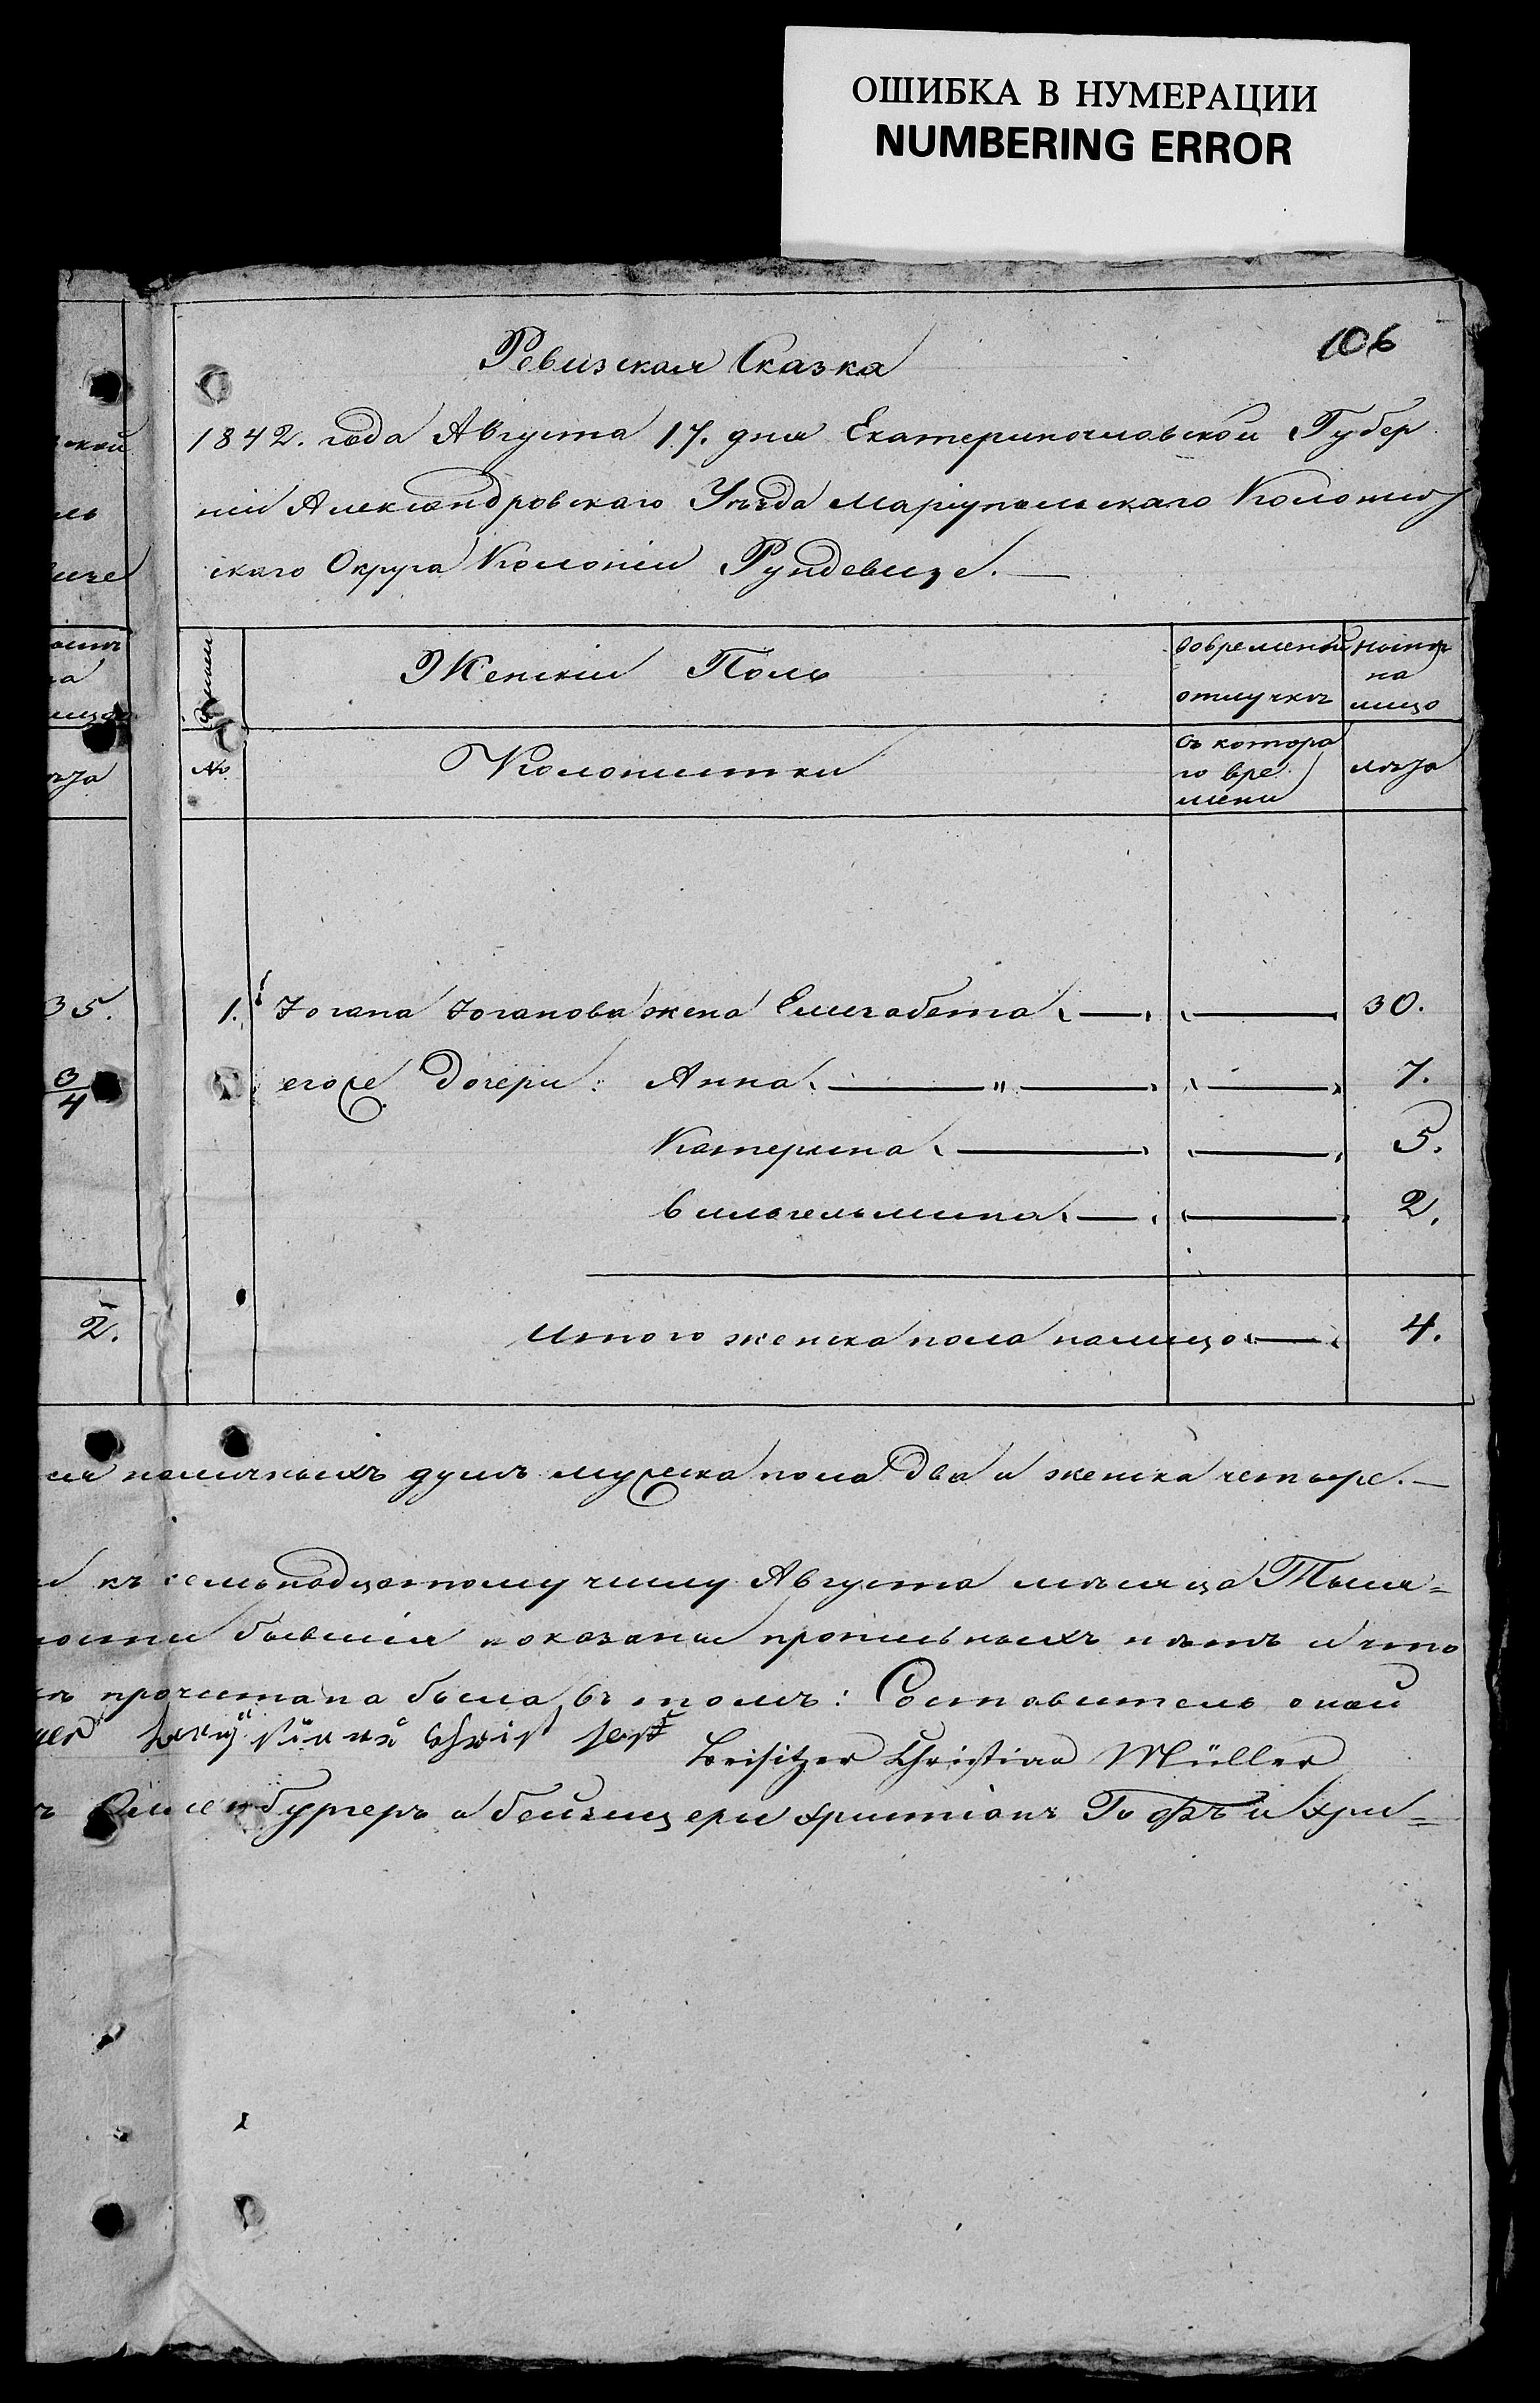 ОШИБКА В НУМЕРАЦИИ
NUMBERING ERROR
106
Ревизская Сказка
1842. года Августа 17. дня Екатеринославской Губер
ніи Александровскаго Уѣзда Маріупольскаго Колонист
скаго Округа Колоніи Рундевизе.
Женскій Полъ
во временной отлучкѣ
нынѣ на лицо
Семьи
№
Колонистки
съ котора
го вре
мени
лѣта
35.
1. Іогана Іоганова жена Елисабета 30.
3/4
его же дочери: Анна 7.
Катерина 5.
Вильгельмина 2.
2.
Итого женска пола налицо 4.
наличныхъ душъ мужска пола два и женска четыре.
къ семьнадцатому числу Августа мѣсяца Тыся=
бывшія показаны прописныхъ нѣтъ и что
прочитана была, въ томъ: Составитель оной
Beisitzer Christian Müller
а бейзицеры Христіанъ Гофъ и Хри=